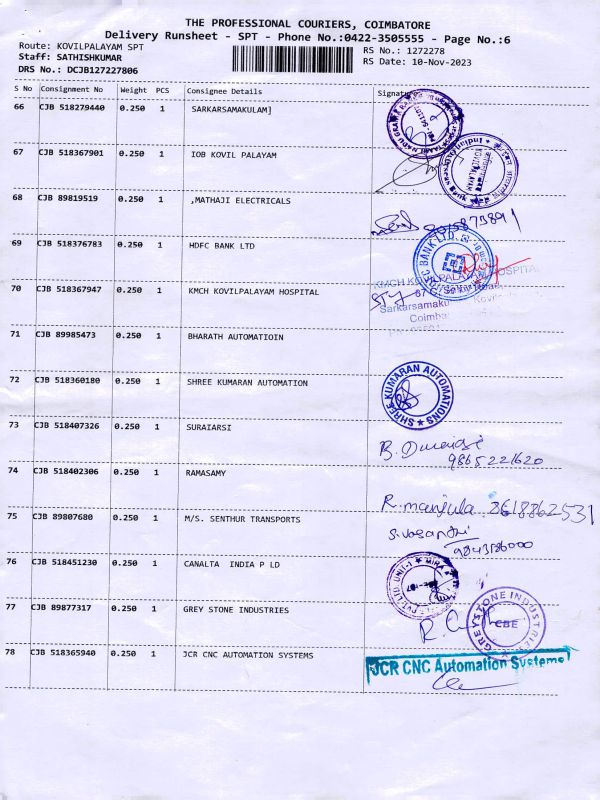 THE PROFESSIONAL COURIERS, COIMBATORE
Delivery Runsheet - SPT - Phone No.:0422-3505555 - Page No.:6
Route: KOVILPALAYAM SPT
RS No.: 1272278
Staff: SATHISHKUMAR
RS Date: 10-Nov-2023
DRS No.: DCJB127227806
S No Consignment No Weight PCS Consignee Details Signature
66 CJB 518279440 0.250 1 SARKARSAMAKULAM]
67 CJB 518367901 0.250 1 IOB KOVIL PALAYAM
68 CJB 89819519 0.250 1 ,MATHAJI ELECTRICALS
69 CJB 518376783 0.250 1 HDFC BANK LTD
70 CJB 518367947 0.250 1 KMCH KOVILPALAYAM HOSPITAL
KMCH KOVILPALAYAM HOSPITAL
71 CJB 89985473 0.250 1 BHARATH AUTOMATIOIN
72 CJB 518360180 0.250 1 SHREE KUMARAN AUTOMATION
SHREE KUMARAN AUTOMATIONS
73 CJB 518407326 0.250 1 SURAIARSI
9865221620
74 CJB 518402306 0.250 1 RAMASAMY
R. manjula 8618862531
75 CJB 89807680 0.250 1 M/S. SENTHUR TRANSPORTS
76 CJB 518451230 0.250 1 CANALTA INDIA P LD
77 CJB 89877317 0.250 1 GREY STONE INDUSTRIES
GREY STONE INDUSTRIES
CBE
78 CJB 518365940 0.250 1 JCR CNC AUTOMATION SYSTEMS
JCR CNC Automation Systems